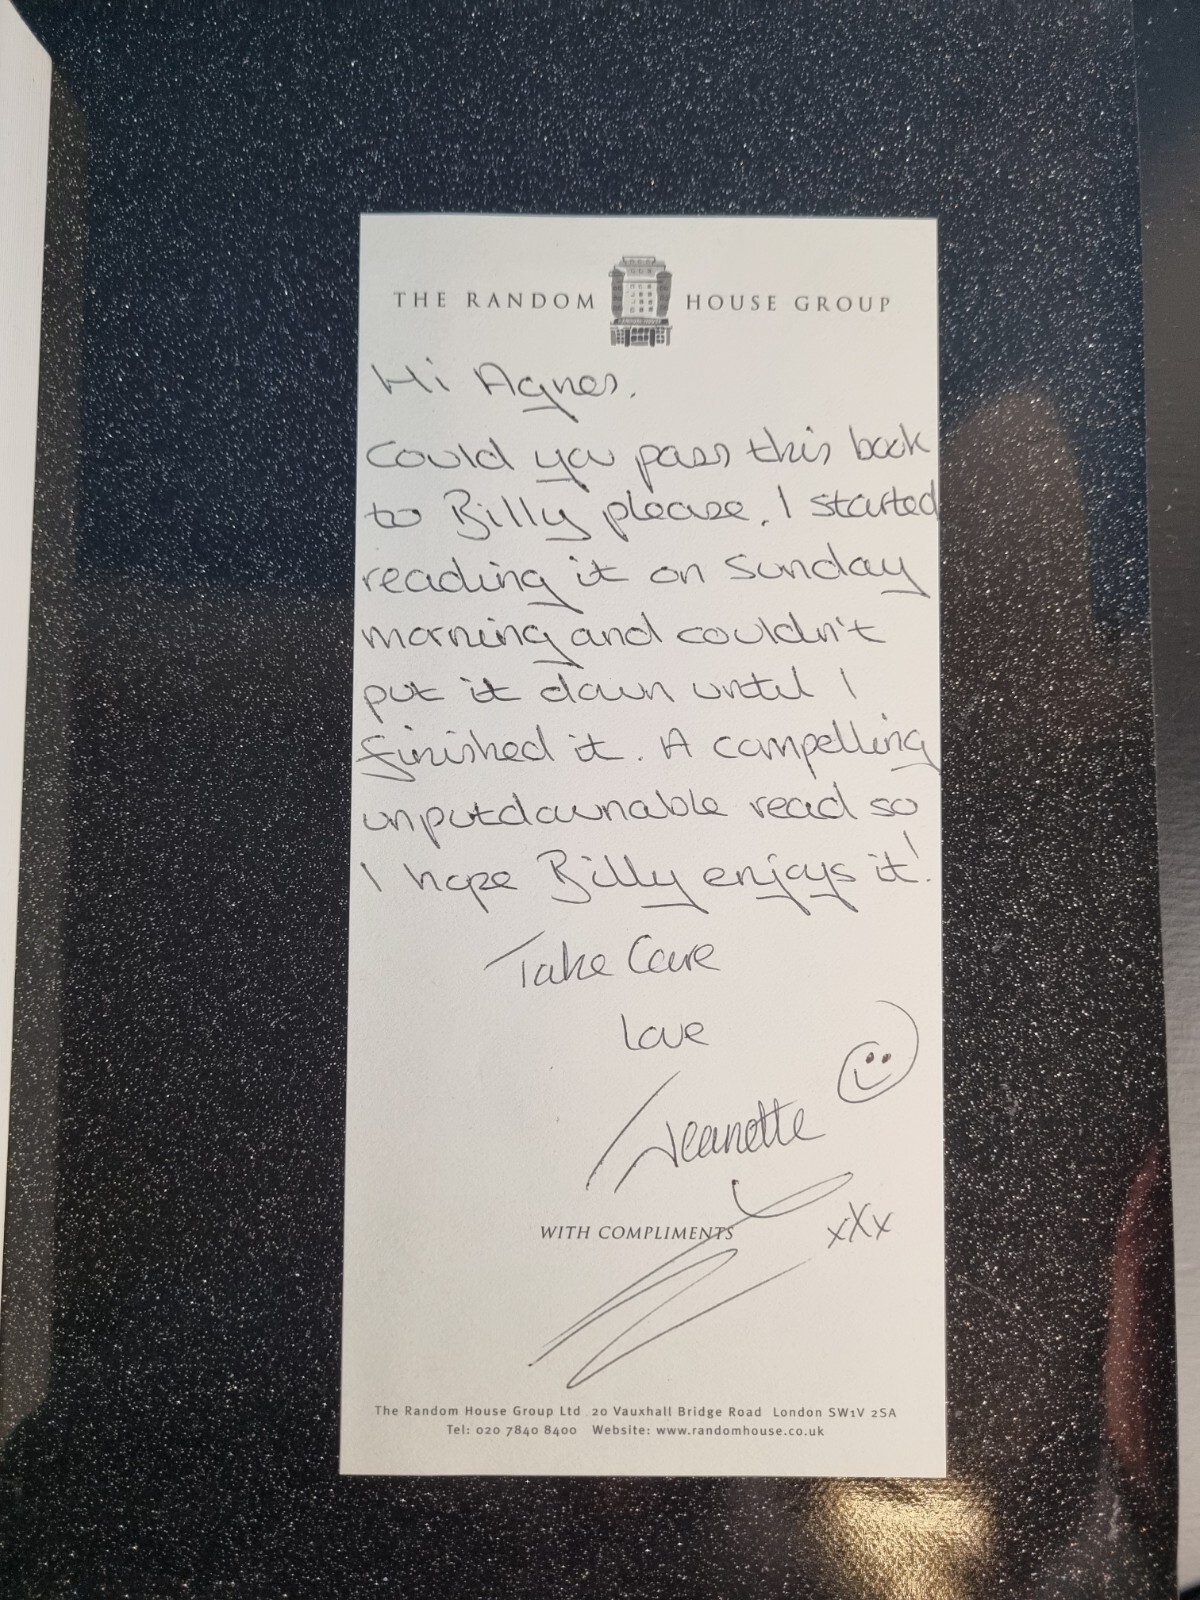 THE RANDOM HOUSE GROUP
Hi Agnes,
Could you pass this book
to Billy please. I started
reading it on Sunday
morning and couldn't
put it down until I
finished it. A compelling
unputdownable read so
I hope Billy enjoys it!
Take Care
Love
Jeanette
WITH COMPLIMENTS
xXx
The Random House Group Ltd 20 Vauxhall Bridge Road London SW1V 2SA
Tel: 020 7840 8400 Website: www.randomhouse.co.uk